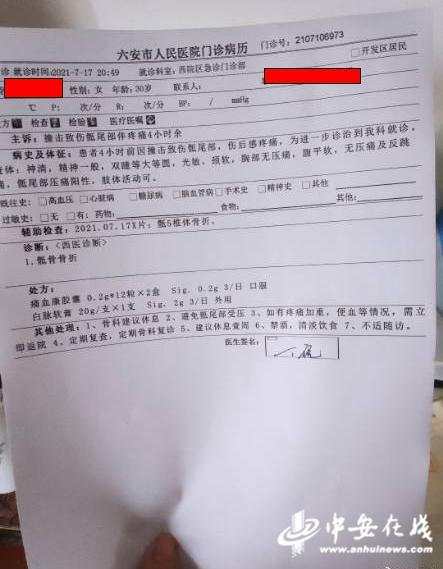 六安市人民医院门诊病历 门诊号：2107106973
诊 就诊时间:2021-7-17 20:49 就诊科室：西院区急诊门诊部 □开发区居民
性别：女 年龄：30岁 联系人：
℃ P： 次/分 R： 次/分 BP： / mmHg
方 检查 检验 医疗医嘱
主诉：撞击致伤骶尾部伴疼痛4小时余
病史及体征：患者4小时前因撞击致伤骶尾部，伤后感疼痛，为进一步诊治到我科就诊。
体：神清，精神一般，双瞳等大等圆，光敏，颈软，胸部无压痛，腹平软，无压痛及反跳
，骶尾部压痛阳性，肢体活动可。
既往史：□高血压 □心脏病 □糖尿病 □脑血管病 □手术史 □精神史 □其他
过敏史：□无 □有：药物： 食物： 其他：
辅助检查：2021.07.17X片：骶5椎体骨折。
诊断：<西医诊断>
1．骶骨骨折
处方：
痛血康胶囊 0.2g*12粒×2盒 Sig. 0.2g 3/日 口服
白脉软膏 20g/支×1支 Sig. 2g 3/日 外用
其他处理：1、骨科建议休息 2、避免骶尾部受压 3、如有疼痛加重，便血等情况，需立
即返院 4、定期复查，定期骨科复诊 5、建议休息壹周 6、禁酒，清淡饮食 7、不适随访。
医生签名：
中安在线
www.anhuinews.com